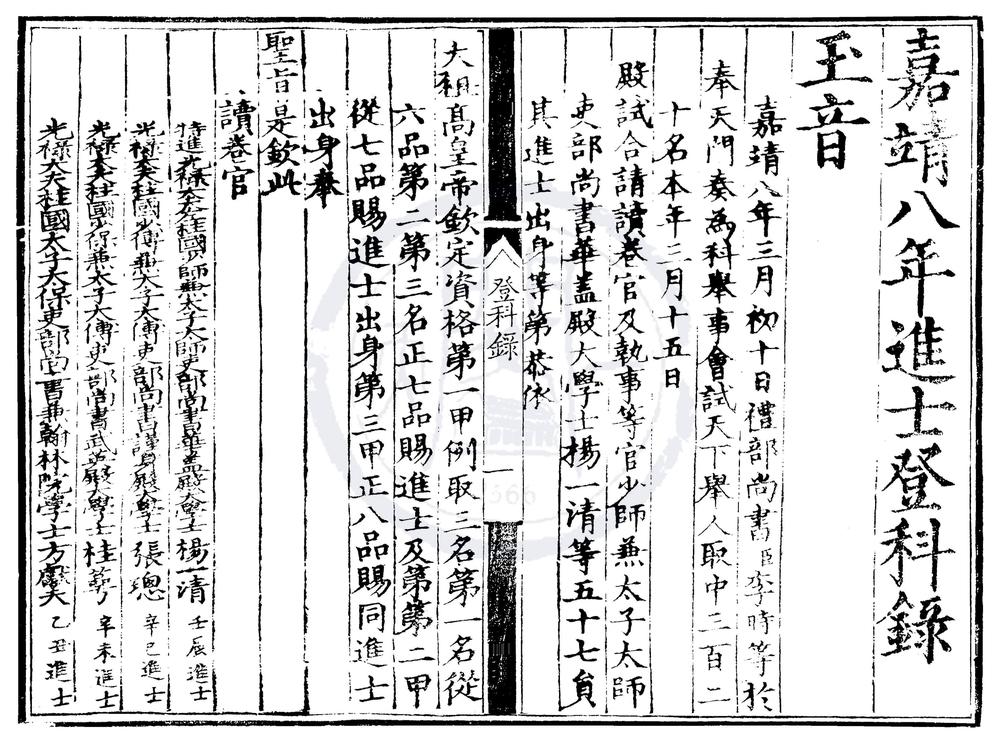 嘉靖八年進士登科錄
玉音
嘉靖八年三月初十日禮部尚書臣李時等於
奉天門奏為科舉事會試天下舉人取中三百二
十名本年三月十五日
殿試合請讀卷官及執事等官少師兼太子太師
吏部尚書華蓋殿大學士楊一清等五十七員
其進士出身等第恭依
登科錄
一
太祖高皇帝欽定資格第一甲例取三名第一名從
六品第二第三名正七品賜進士及第第二甲
從七品賜進士出身第三甲正八品賜同進士
出身奉
聖旨是欽此
讀卷官
特進光祿大夫左柱國少師兼太子太師吏部尚書華蓋殿大學士楊一清 壬辰進士
光祿大夫柱國少傅兼太子太傅吏部尚書謹身殿大學士張璁 辛巳進士
光祿大夫柱國少保兼太子太傅吏部尚書武英殿大學士桂萼 辛未進士
光祿大夫柱國太子太保吏部尚書兼翰林院學士方獻夫 乙丑進士